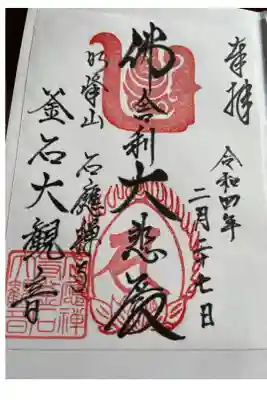 奉拝
令和四年
二月二十七日
佛舎利大悲殿
明峯山 石應禅寺
釜石大観音